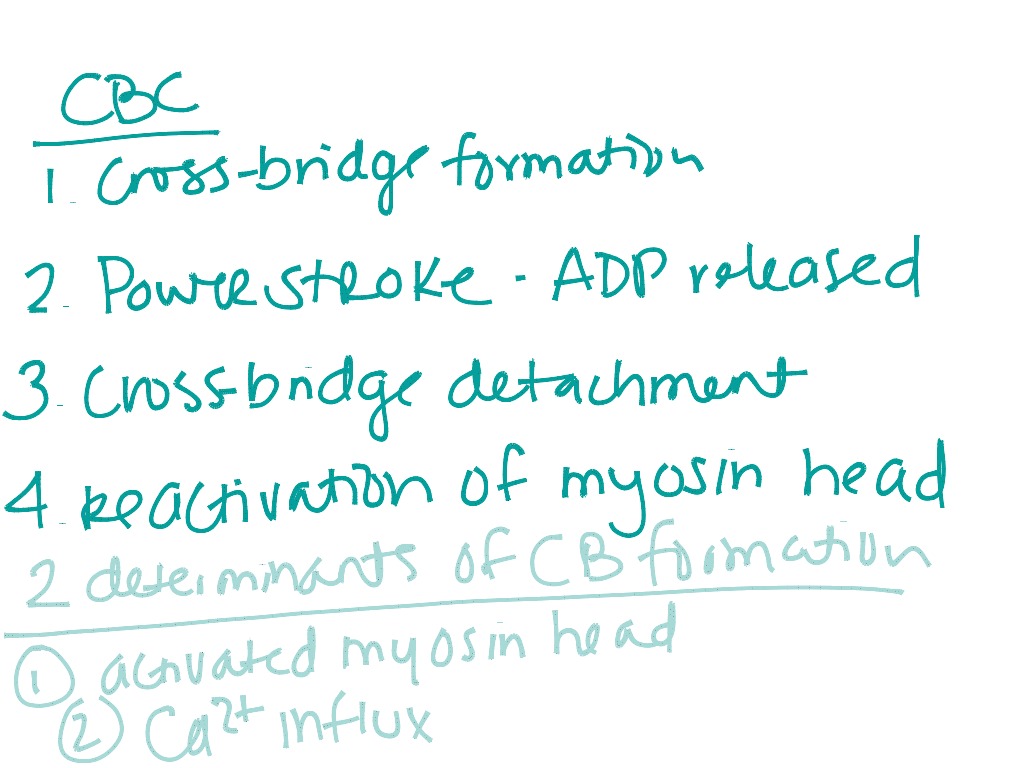 CBC
1. Cross-bridge formation
2. Power stroke - ADP released
3. Cross-bridge detachment
4. Reactivation of myosin head
2 determinants of CB formation
① activated myosin head
② Ca²⁺ influx